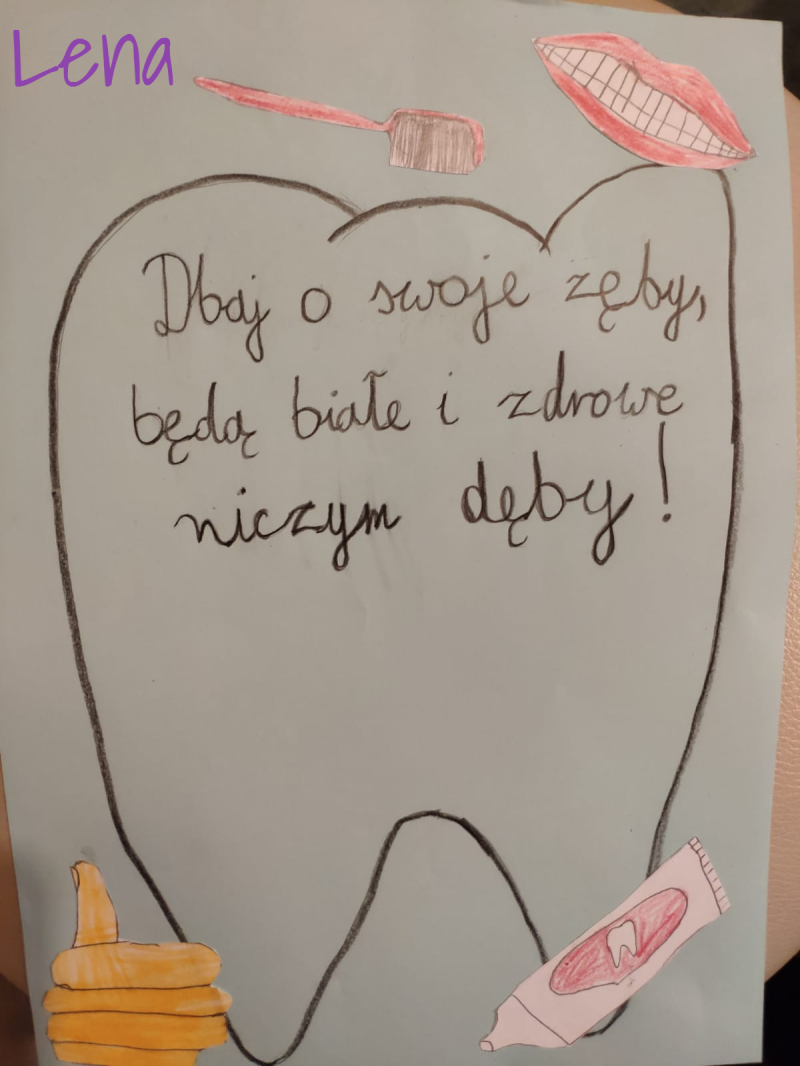 Lena
Dbaj o swoje zęby,
będą białe i zdrowe
niczym dęby!